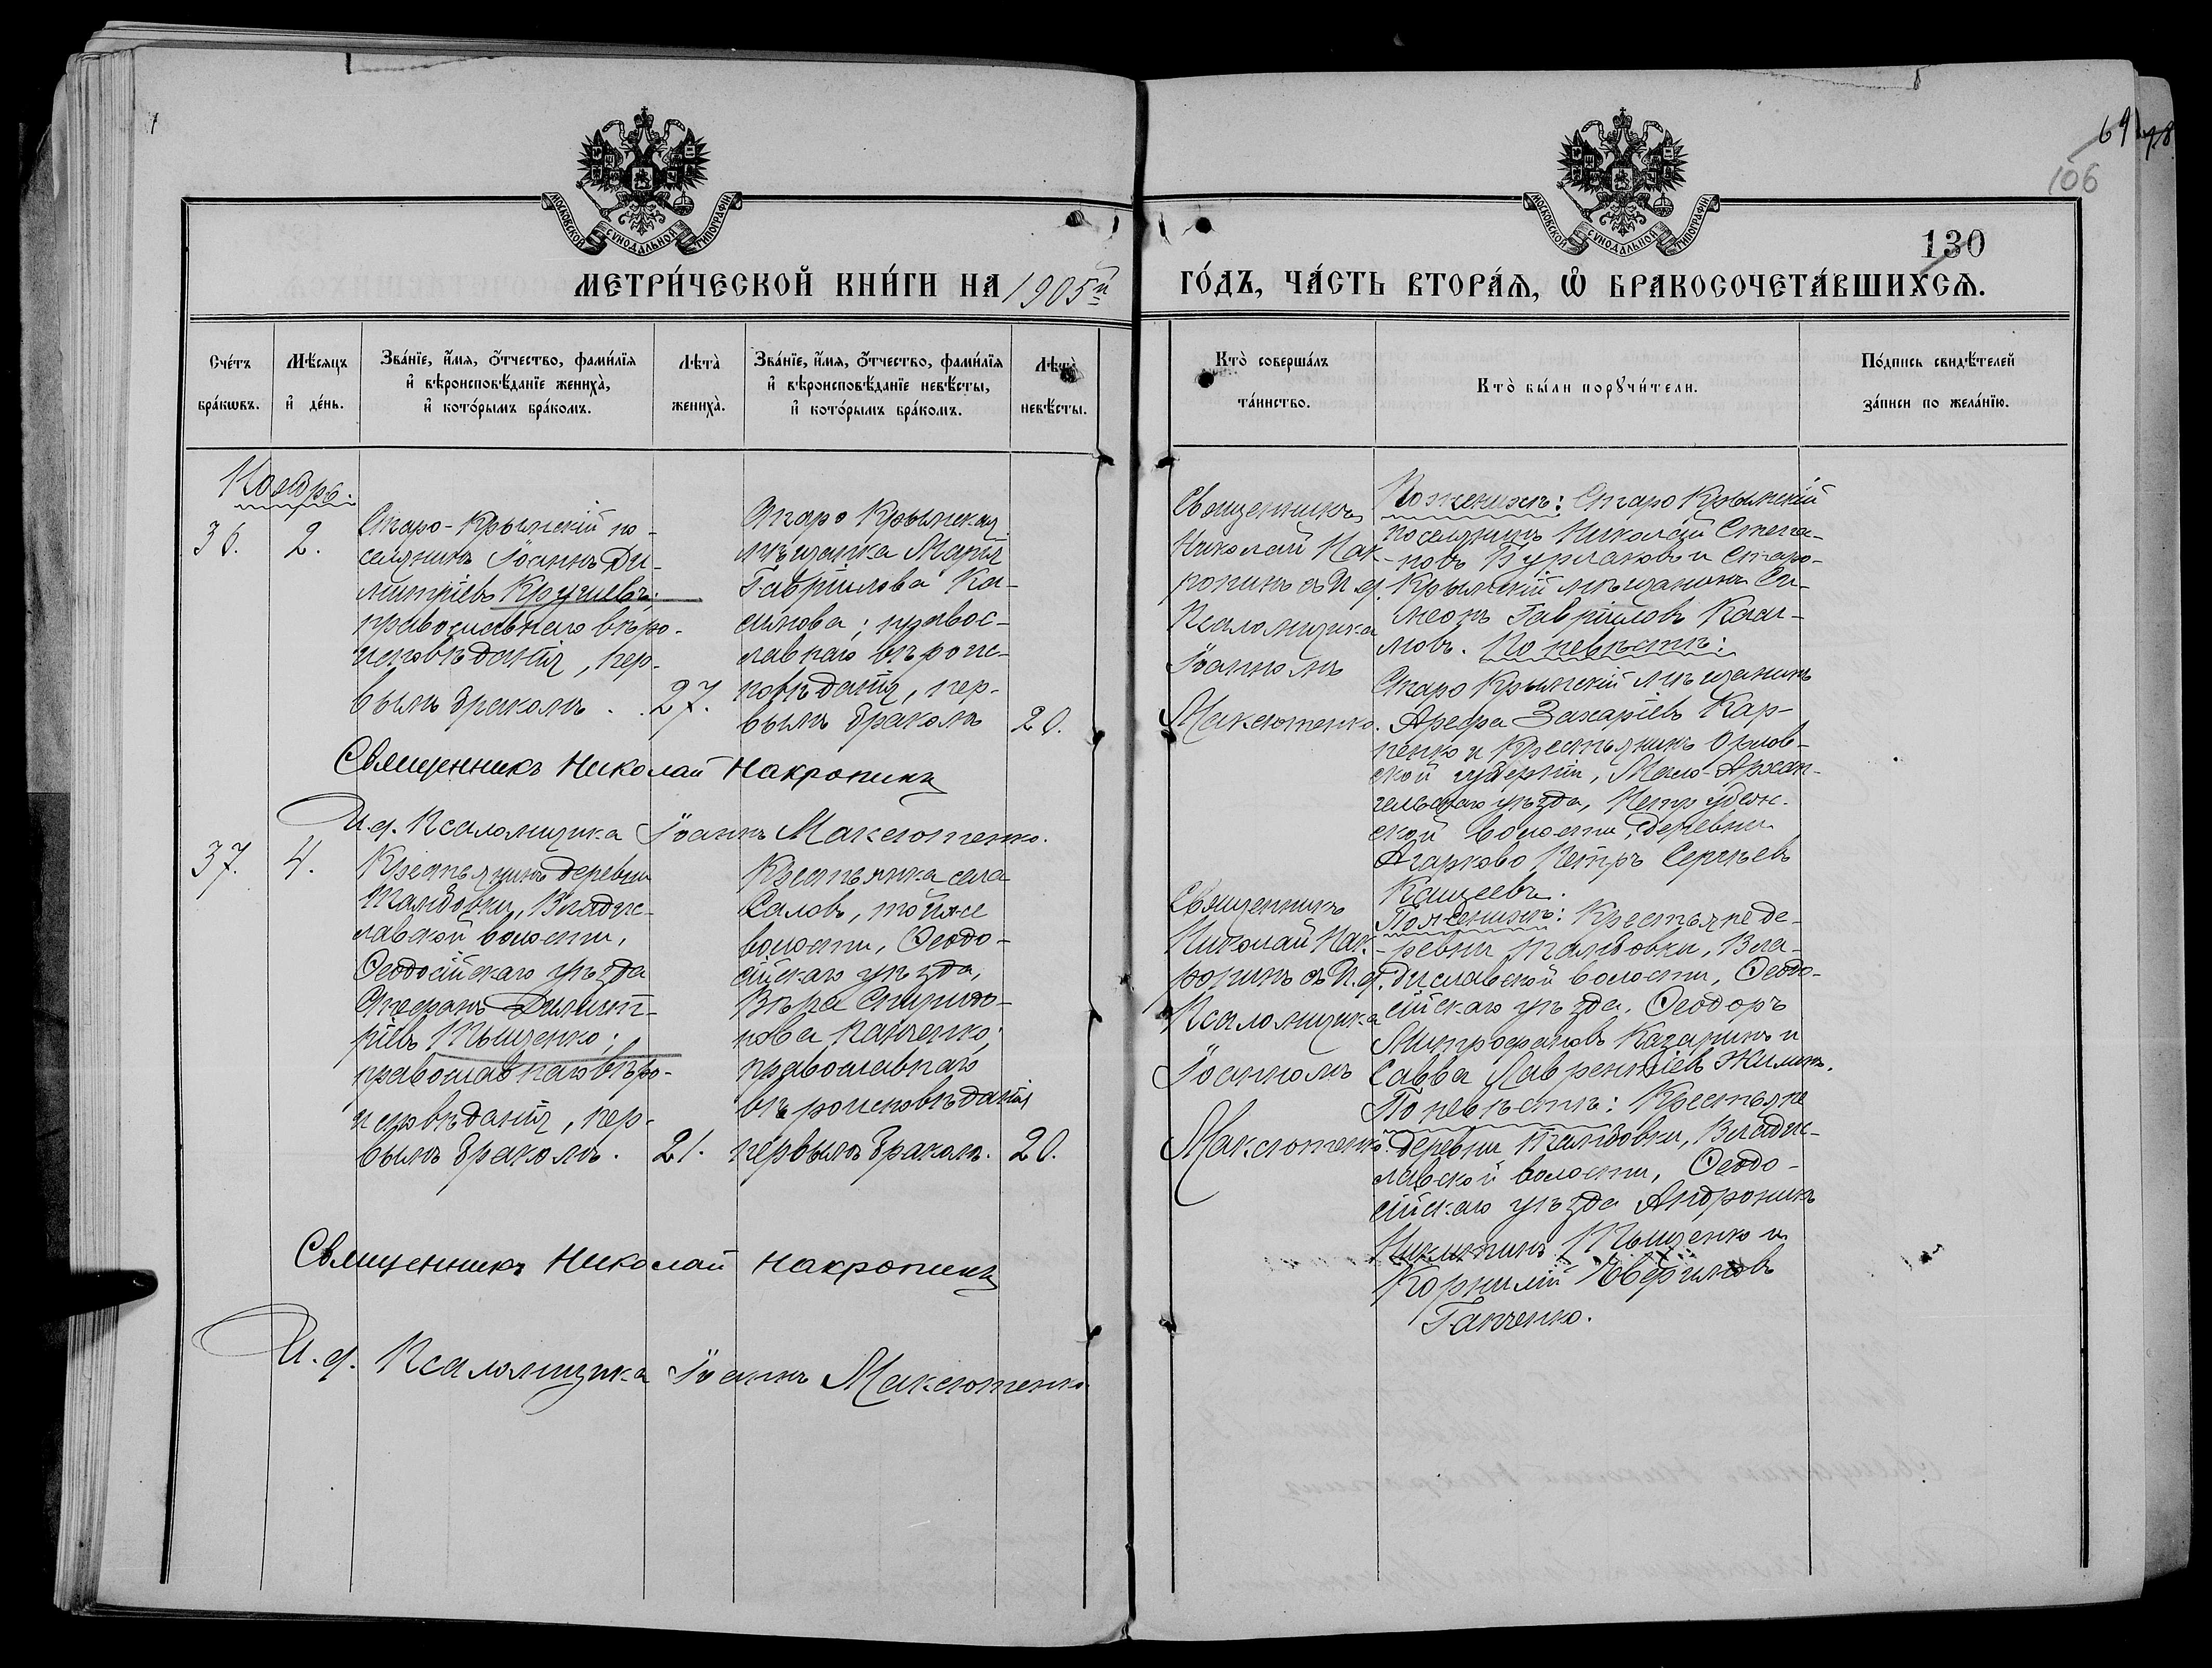 69 78
106
130
МОСКОВСКОЙ СѴНОДАЛЬНОЙ ТИПОГРАФІИ
МОСКОВСКОЙ СѴНОДАЛЬНОЙ ТИПОГРАФІИ
МЕТРИ́ЧЕСКОЙ КНИ́ГИ НА 1905й
ГО́ДЪ, ЧА́СТЬ ВТОРА́Ѧ, Ѡ҆ БРАКОСОЧЕТА́ВШИХСѦ.
Сче́тъ бра́кѡвъ.
Мѣ́сяцъ и҆ де́нь.
Зва́нїе, и҆́мя, ѻ҆́тчество, фами́лїя
и҆ вѣроисповѣ́данїе жениха̀,
и҆ кото́рымъ бра́комъ.
Лѣта̀ жениха̀.
Зва́нїе, и҆́мя, ѻ҆́тчество, фами́лїя
и҆ вѣроисповѣ́данїе невѣ́сты,
и҆ кото́рымъ бра́комъ.
Лѣта̀ невѣ́сты.
Кто̀ соверша́лъ
та́инство.
Кто̀ бы́ли порꙋчи́тели.
По́дпись свидѣ́телей
за́писи по жела́нїю.
Ноябрь.
36. 2.
Старо-Крымскій по-
селянинъ Іоаннъ Ди-
митріевъ Кручіевъ;
православнаго вѣро-
исповѣданія, пер-
вымъ бракомъ. 27.
Старо Крымская
мѣщанка Марія
Гавріилова Ка-
симова; правос-
лавнаго вѣроис-
повѣданія, пер-
вымъ бракомъ 20.
Священникъ
Николай Нак-
ропинъ съ И. д.
Псаломщика
Іоанномъ
Максютенко.
По женихѣ: Старо Крымскій
поселянинъ Николай Степа-
новъ Бурлаковъ и Старо-
Крымскій мѣщанинъ Си-
меонъ Гавріиловъ Каси-
мовъ. По невѣстѣ:
Старо Крымскій мѣщанинъ
Арефа Захаріевъ Кар-
пенко и Крестьянинъ Орлов-
ской губерніи, Мало-Архан-
гельскаго уѣзда,
ской волости, деревни
Агарково Петръ Сергѣевъ
Кащеевъ.
Священникъ Николай Накропинъ
И. д. Псаломщика Іоаннъ Максютенко.
37. 4.
Крестьянинъ деревни
Тамбовки, Владис-
лавской волости,
Ѳеодосійскаго уѣзда
Стефанъ Димит-
ріевъ Тыщенко;
православнаго вѣро-
исповѣданія, пер-
вымъ бракомъ. 21.
Крестьянка села
Саловъ, той же
волости, Ѳеодо-
сійскаго уѣзда,
Вѣра Спиридо-
нова Панченко;
православнаго
вѣроисповѣданія
первымъ бракомъ. 20.
Священникъ
Николай Нак-
ропинъ съ И. д.
Псаломщика
Іоанномъ
Максютенко.
По женихѣ: Крестьяне де-
ревни Тамбовки, Вла-
диславской волости, Ѳеодо-
сійскаго уѣзда. Ѳеодоръ
Митрофановъ Казаринъ и
Савва Лаврентіевъ Жилинъ.
По невѣстѣ: Крестьяне
деревни Тамбовки, Владис-
лавской волости, Ѳеодо-
сійскаго уѣзда Андроникъ
Никитинъ Тыщенко и
Корнилій Евфимовъ
Ганченко.
Священникъ Николай Накропинъ
И. д. Псаломщика Іоаннъ Максютенко.